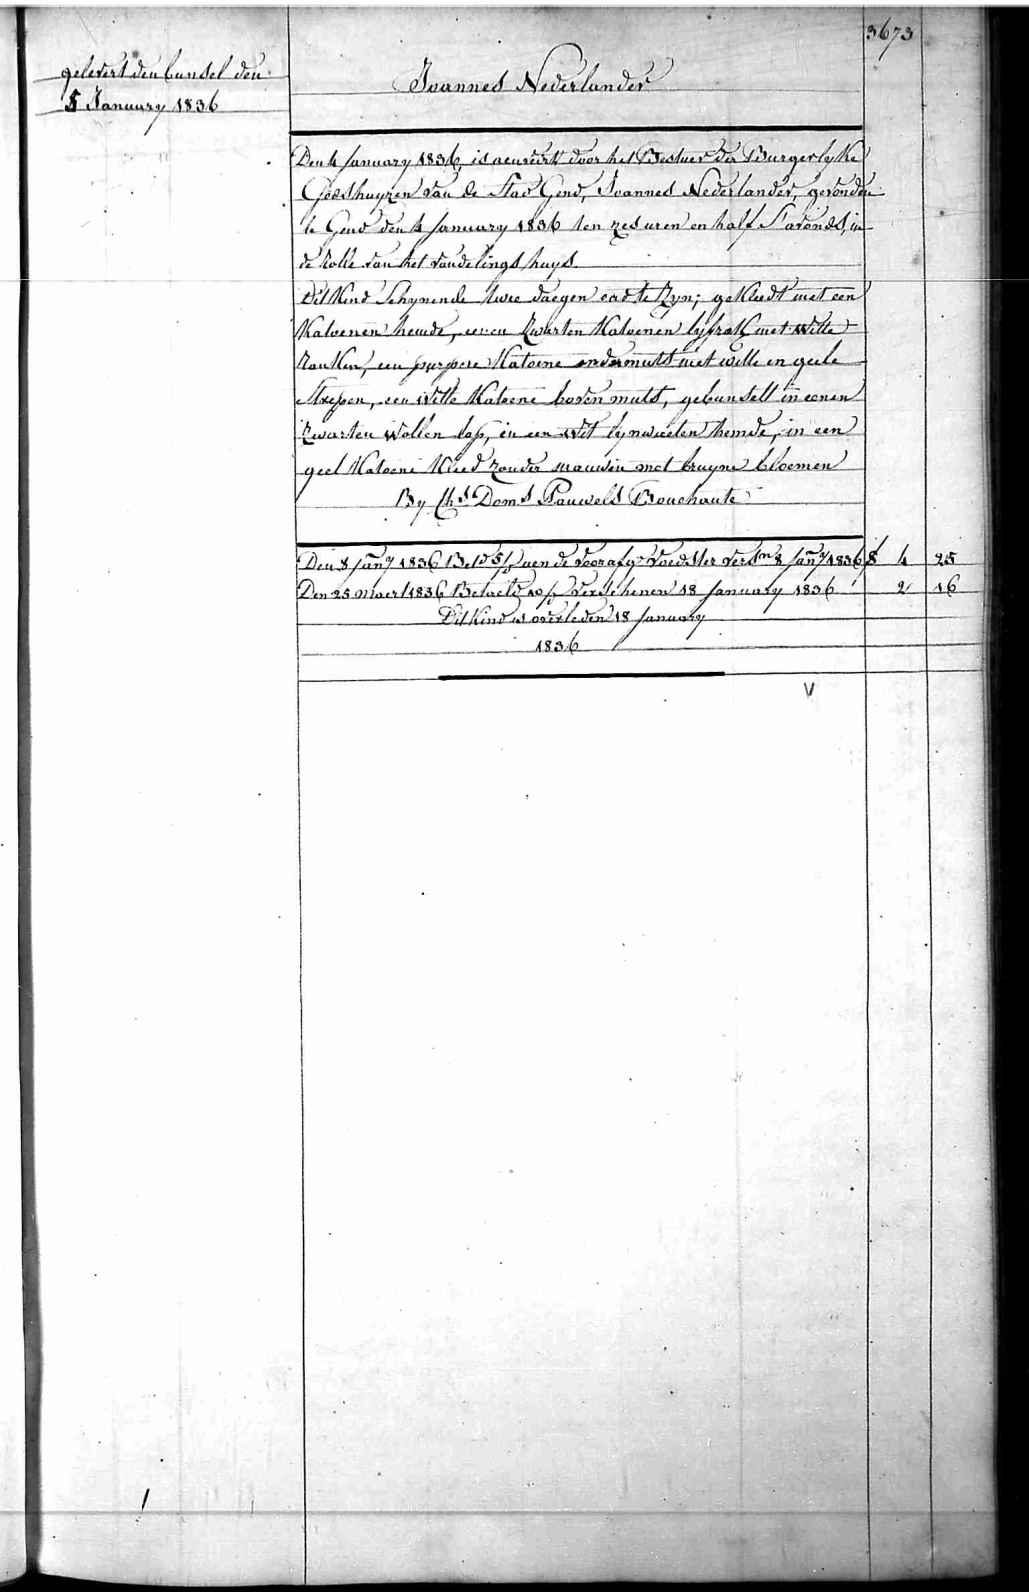 3673
gelevert den bunsel den
5 January 1836
Joannes Nederlander
Den 4 January 1836, is aenveirt door het Bestuer der Burgerlyke
Godshuyzen van de Stad Gend, Joannes Nederlander, gevonden
te Gend den 4 January 1836 ten zes uren en half S'avonds, in
de rolle van het vondelingshuys.
Dit Kind Schynende twee daegen oud te zyn; gekleedt met een
Katoenen hemde, eenen Zwarten Katoenen lyfrok met witte
Ranken, een purpere Katoene ondermuts met witte en geele
Strepen, een witte Katoene boven muts, gebunselt in eenen
Zwarten Wollen lap, in een wit lynwaeten hemde, in een
geel Katoene Kleed zonder mauwen met bruyne bloemen
By Chs Doms Pauwels Bouchaute
Den 8 Jany 1836 Betd 5/f aen de voorafge voedster versn 8 Jany 1836 f 4 25
Den 25 maert 1836 Betaeld 10/f verschenen 18 January 1836 2 16
Dit Kind is overleden 18 January
1836
V